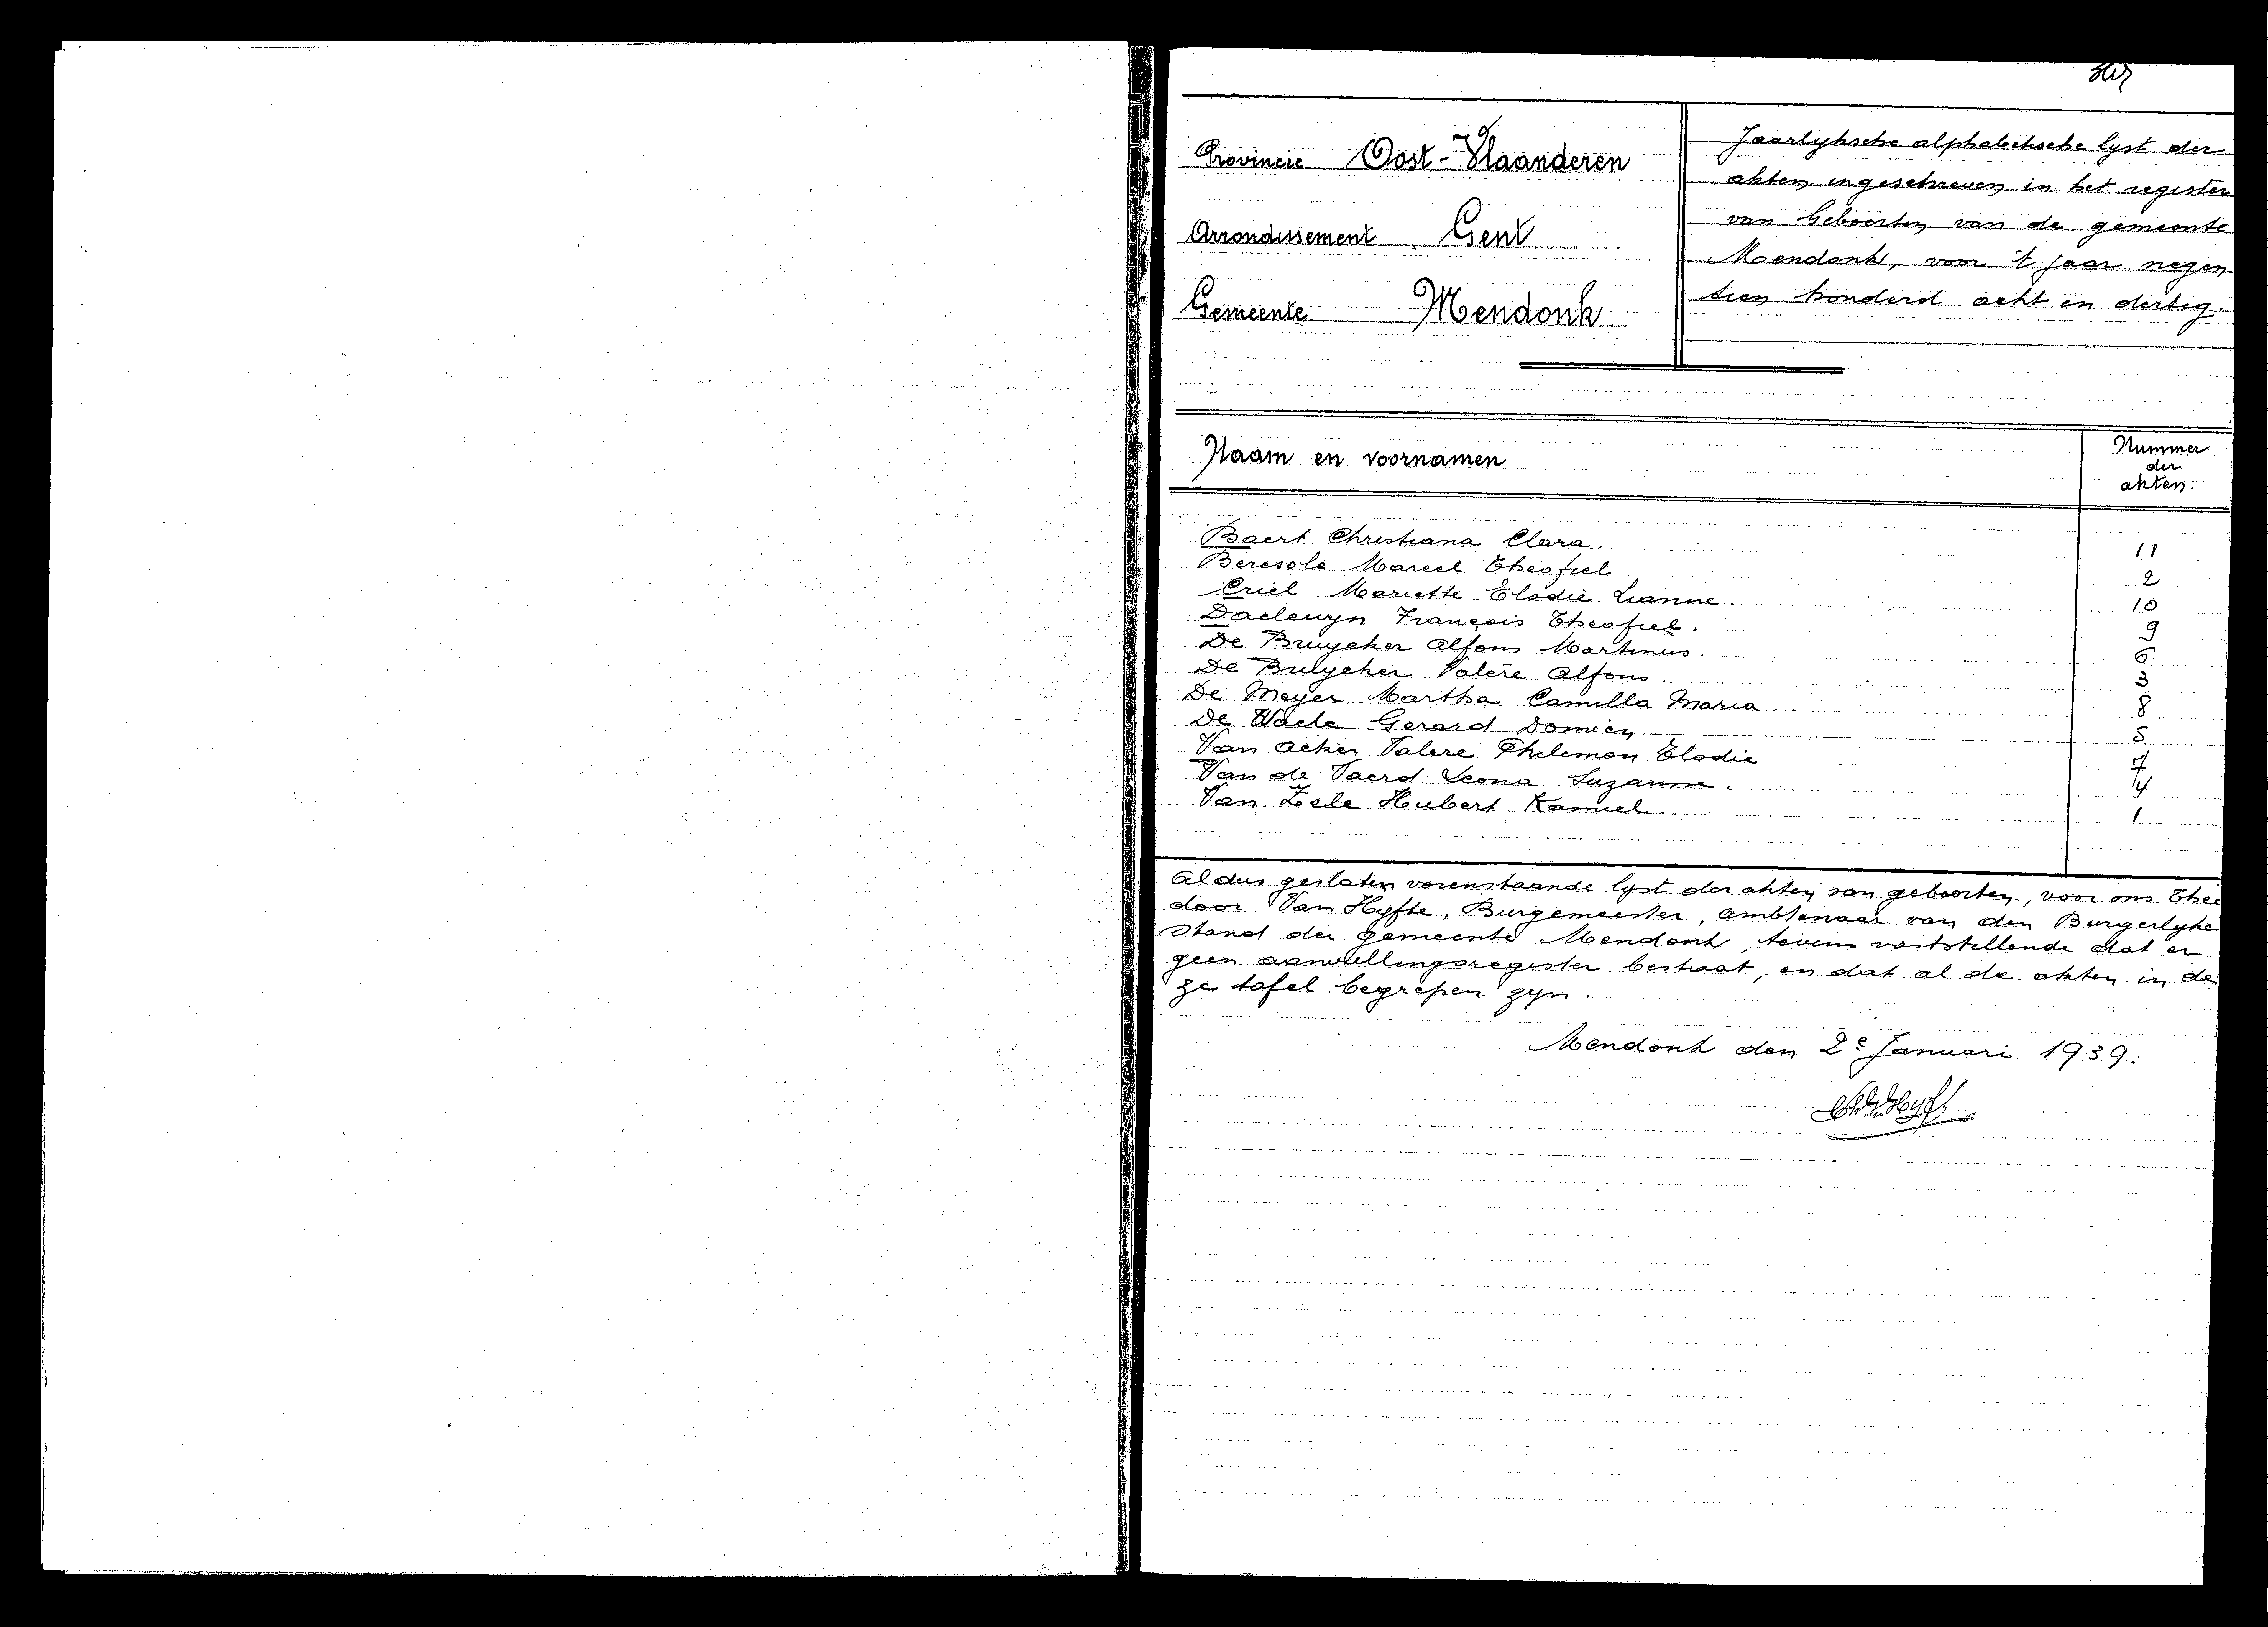 Provincie Oost-Vlaanderen
Arrondissement Gent
Gemeente Mendonk
Jaarlyksche alphabetische lyst der
akten ingeschreven in het register
van Geboorten van de gemeente
Mendonk, voor 't jaar negen
tien honderd acht en dertig.
Naam en voornamen
Nummer
der
akten.
Baert Christiana Clara. 11
Beresole Marcel Theofiel 2
Criel Mariette Elodie Lianne. 10
Daeleuyn François Theofiel. 9
De Bruycker Alfons Martinus 6
De Bulycker Valère Alfons. 3
De Meyer Martha Camilla Maria 8
De Waele Gerard Domien 5
Van Acker Valere Philemon Elodie 7
Van de Vaerd Leona Suzanne. 4
Van Zele Hubert Kamiel. 1
Aldus gesloten vorenstaande lyst der akten van geboorten, voor ons Theo
door Van Hyfte, Burgemeester, ambtenaar van den Burgerlyke
stand der gemeente Mendonk, tevens vaststellende dat er
geen aanvullingsregister bestaat, en dat al de akten in de
ze tafel begrepen zyn.
Mendonk den 2e Januari 1939.